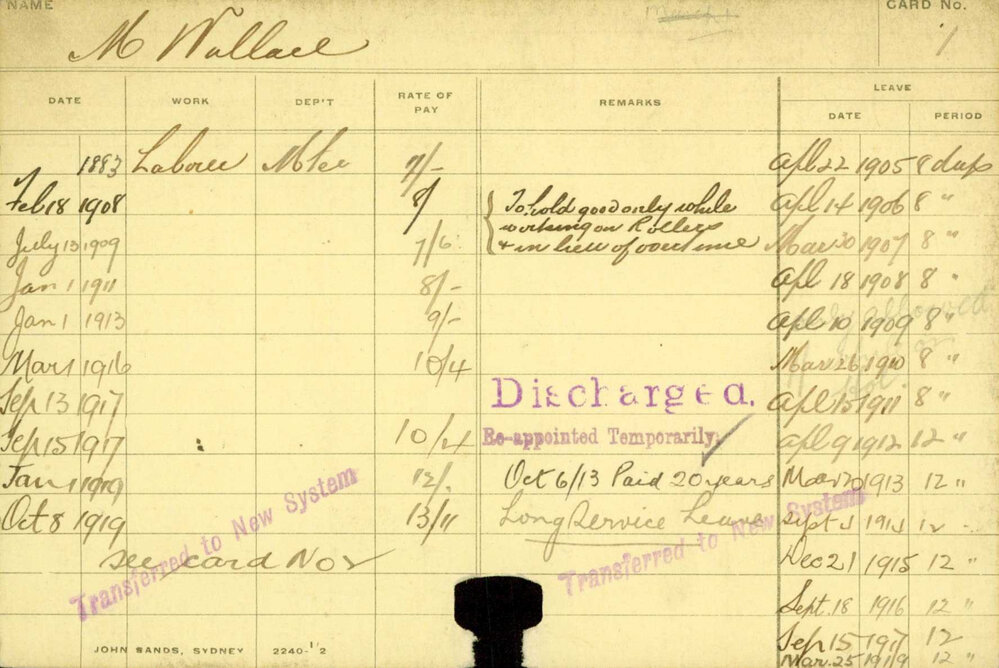 NAME
CARD No.
M Wallace
1
DATE WORK DEP'T RATE OF PAY REMARKS LEAVE
DATE PERIOD
1883 Labourer 7/- Apl 22 1905 8 days
Feb 18 1908 8/ To hold good only while Apl 14 1906 8 "
working on Rollers
July 13 1909 7/6 & in lieu of overtime Mar 30 1907 8 "
Jan 1 1911 8/- Apl 18 1908 8 "
Jan 1 1913 9/- Apl 10 1909 8 "
Mar 1 1916 10/4 Mar 26 1910 8 "
Sep 13 1917 Discharged. Apl 15 1911 8 "
Sep 15 1917 10/4 Re-appointed Temporarily. Apl 9 1912 12 "
Jan 1 1919 12/- Oct 6/13 Paid 20 years Mar 20 1913 12 "
Oct 8 1919 13/11 Long Service Leave Sept 12
see card No 2 Dec 21 1915 12 "
Transferred to New System
Transferred to New System
Sept. 18 1916 12 "
Sep 15 1917 12
Mar. 25 1919 12 "
JOHN SANDS, SYDNEY 2240-1/2